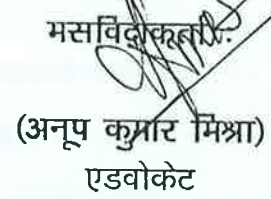 मसविदाकर्ता:-
(अनूप कुमार मिश्रा)
एडवोकेट